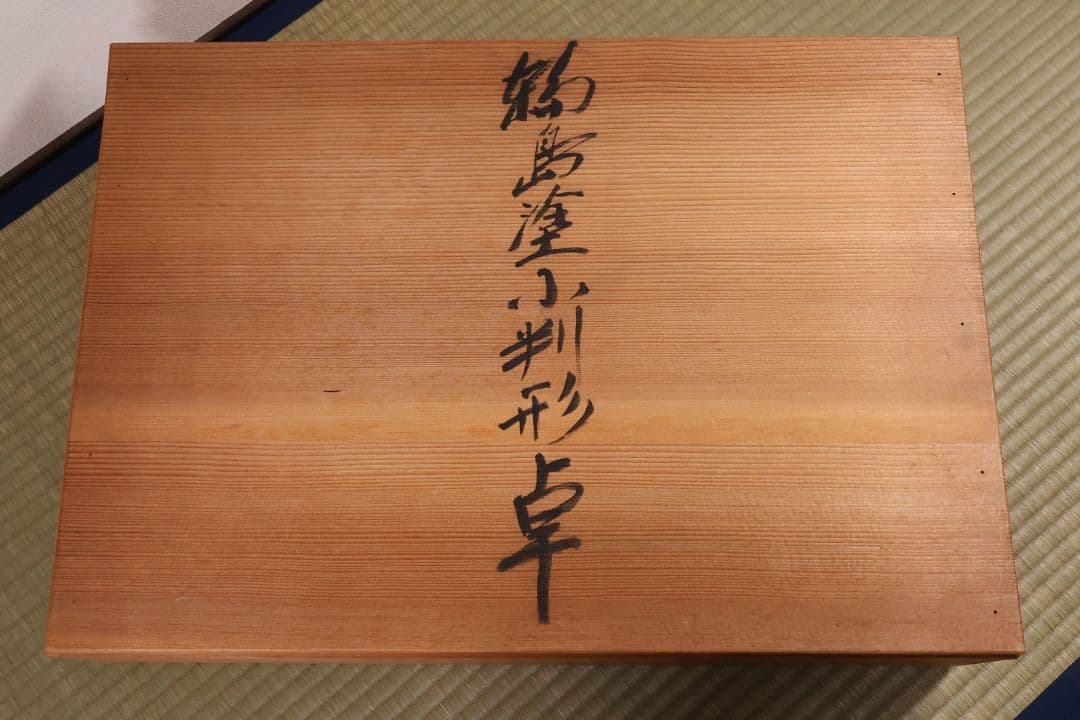 輪島塗小判形卓